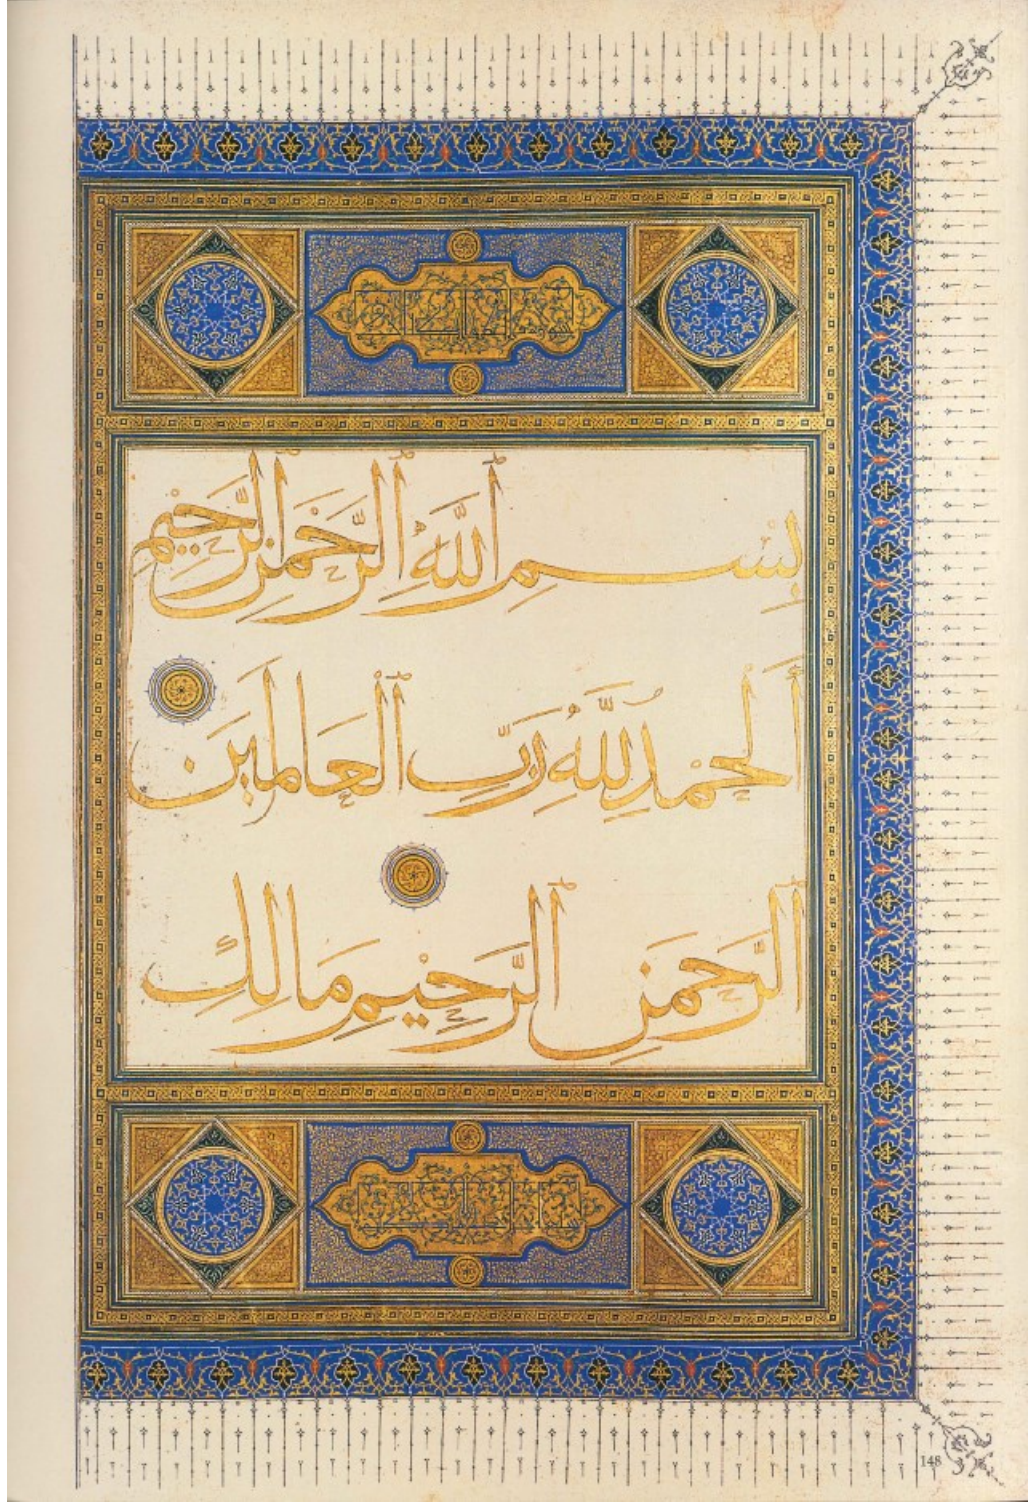 بِسْمِ ٱللَّهِ ٱلرَّحْمَنِ ٱلرَّحِيْمِ
اَلْحَمْدُ لِلَّهِ رَبِّ ٱلْعَالَمِينَ
ٱلرَّحْمَنِ ٱلرَّحِيْمِ مَالِكِ
148